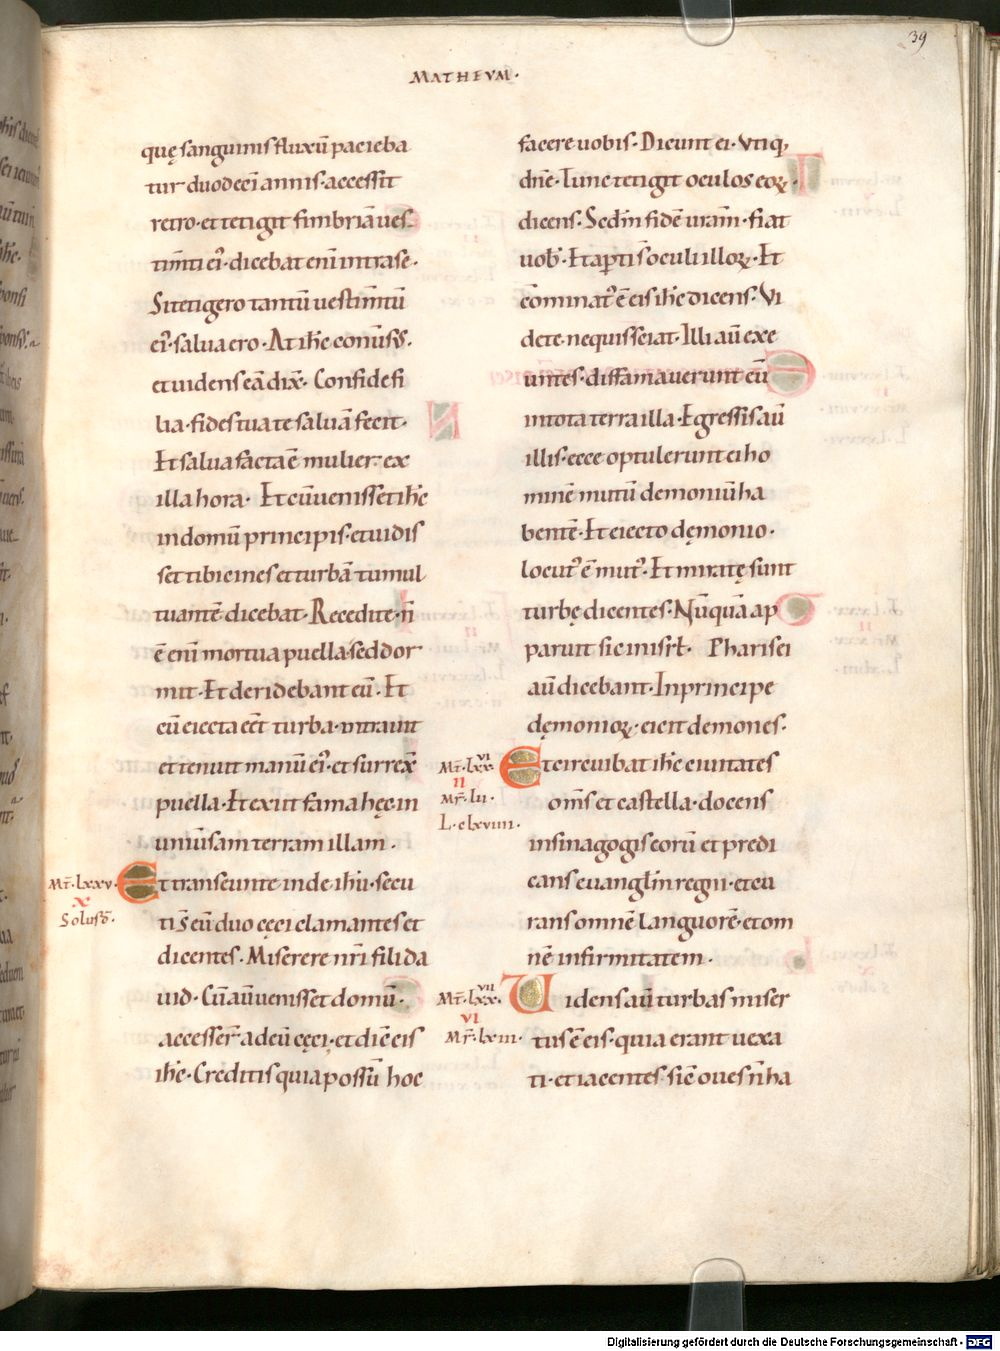 39
MATHEVM·
quę sanguinis fluxū pacieba
tur duodecī annis· accessit
retro· et tetigit fimbriā ues
tim̄ti ei᾽· dicebat enī intra se·
Si tetigero tantū uestim̄tū
ei᾽· salua ero· At ih̄c conūs᾽s·
et uidens eā dix̄· Confide fi
lia· fides tua te saluā fecit·
Et salua facta ē mulier· ex
illa hora· Et cū uenisset ih̄c
in domū principis· et uidis
set tibicines et turbā tumul
tuantē dicebat· Recedite· n̄
ē enī mortua puella sed dor
mit· Et deridebant eū· Et
cū eiecta eēt turba· intrauit
et tenuit manū ei᾽· et surrex̄
puella· Et exiit fama hęc in
uniūsam terram illam·
Mt̄· lxxv·
x
Solus ō·
Et transeunte inde ih̄u· secu
ti s̄ eū duo cęci clamantes et
dicentes· Miserere nr̄i fili da
uid· Cū aū uenisset domū·
accesser̄ ad eū cęci· et dic̄ eis
ih̄c· Creditis quia possū hoc
facere uobis· Dicunt ei· Vtiq;
dn̄e· Tunc tetigit oculos eoꝝ·
dicens· Sed̄m fidē uram̄· fiat
uob᾽· Et apti s̄ oculi illoꝝ· Et
cōminat᾽ ē eis ih̄c dicens· Vi
dete nequis sciat· Illi aū exe
untes· diffamauerunt eū
in tota terra illa· Egressis aū
illis· ecce optulerunt ei ho
minē mutū demoniū ha
bentē· Et eiecto dęmonio·
locut᾽ ē mut᾽· Et miratę sunt
turbę dicentes· Nūquā ap
paruit sic in isrł· Pharisei
aū dicebant· In principe
dęmonioꝝ· eicit demones·
Mt̄· lxxvi·
II
Mr̄· lii·
L· clxviiii·
Et circuibat ih̄c ciuitates
om̄s et castella· docens
in sinagogis eorū et predi
cans euangłin regni· et cu
rans omnē languorē· et om
nē infirmitatem·
Mt̄· lxxvii·
VI
Mr̄· lxiii·
Uidens aū turbas miser
tus ē eis· quia erant uexa
ti· et iacentes· sic̄ oues n̄ ha
Digitalisierung gefördert durch die Deutsche Forschungsgemeinschaft - DFG